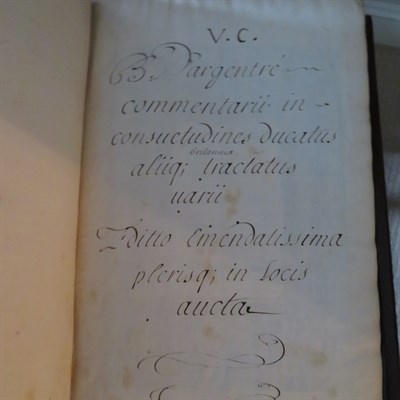 V. C.
B. Dargentré
commentarii in
consuetudines ducatus
britanniæ
aliiq; tractatus
uarii
Editio Emendatissima
plerisq; in Locis
aucta